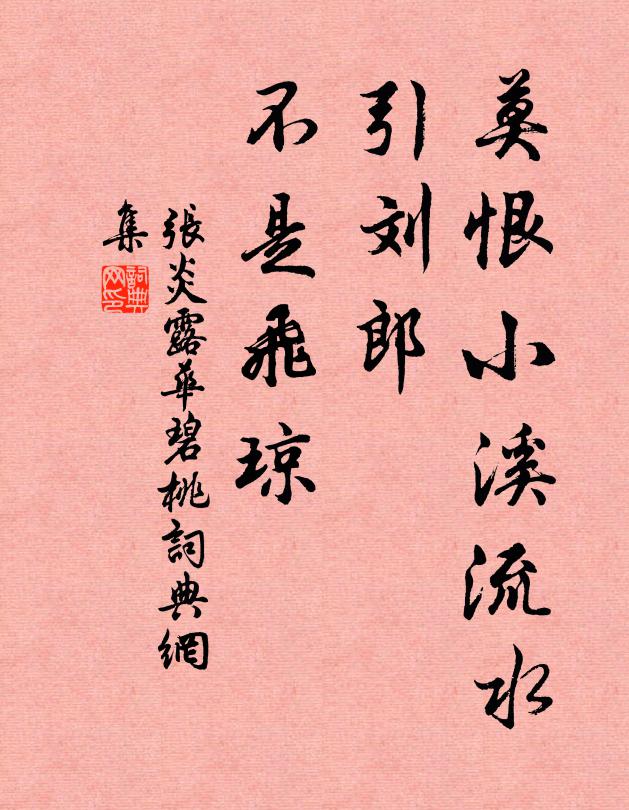 莫恨小溪流水
引刘郎
不是飛琼
張炎露華碧桃詞典網
集
詞典
网印